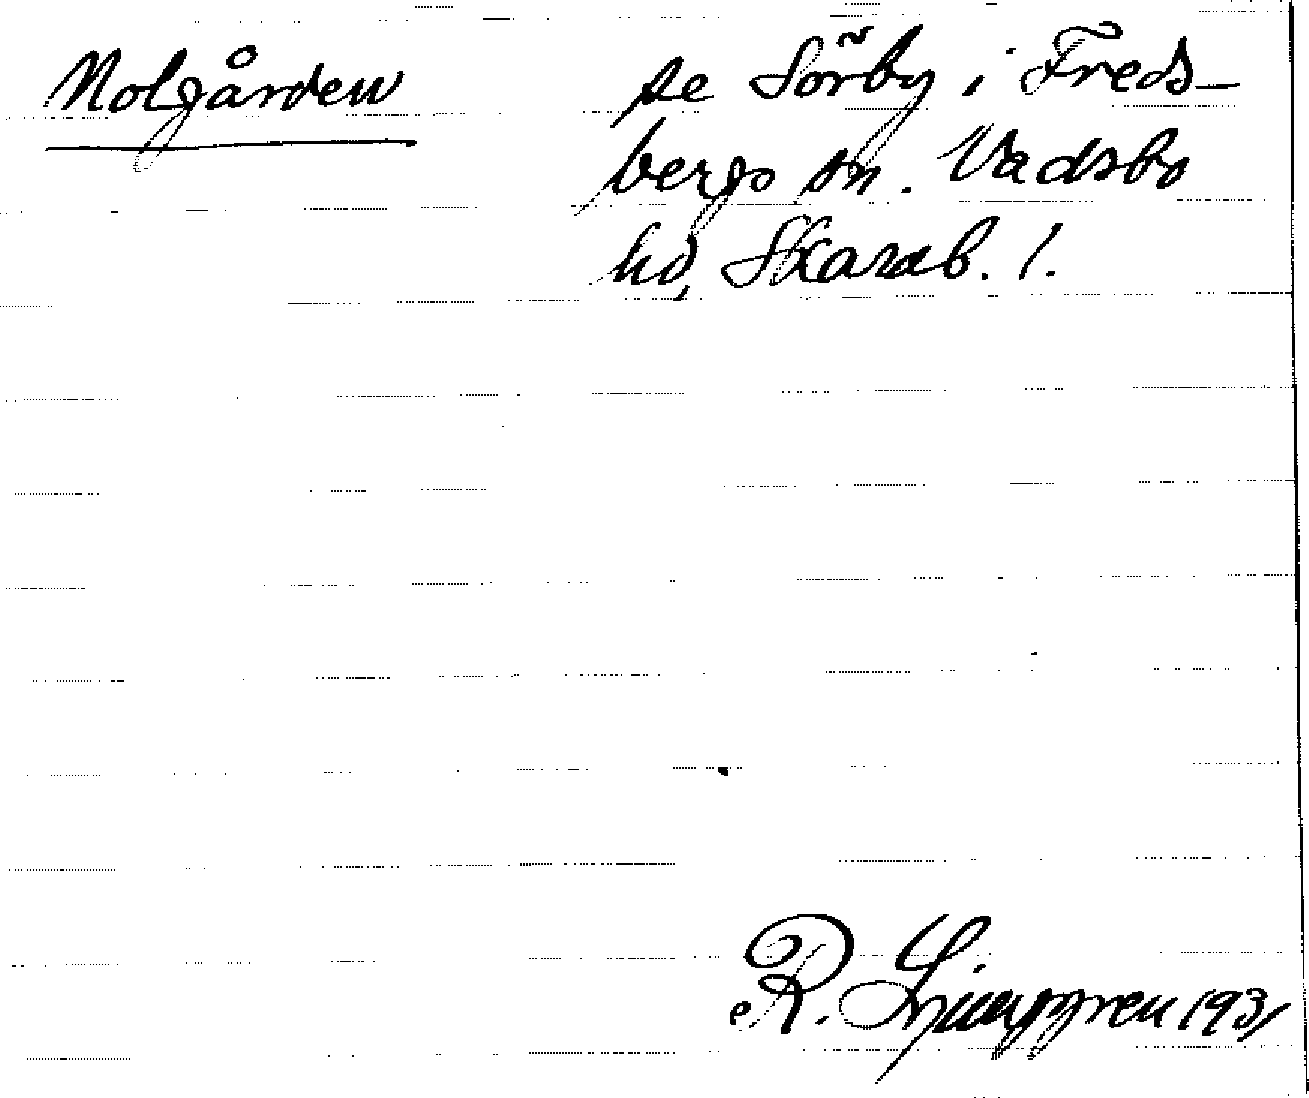 Nolgården
se Sörby i Freds-
bergs sn. Vadsbo
hd, Skarab. l.
R. Ljunggren 1931